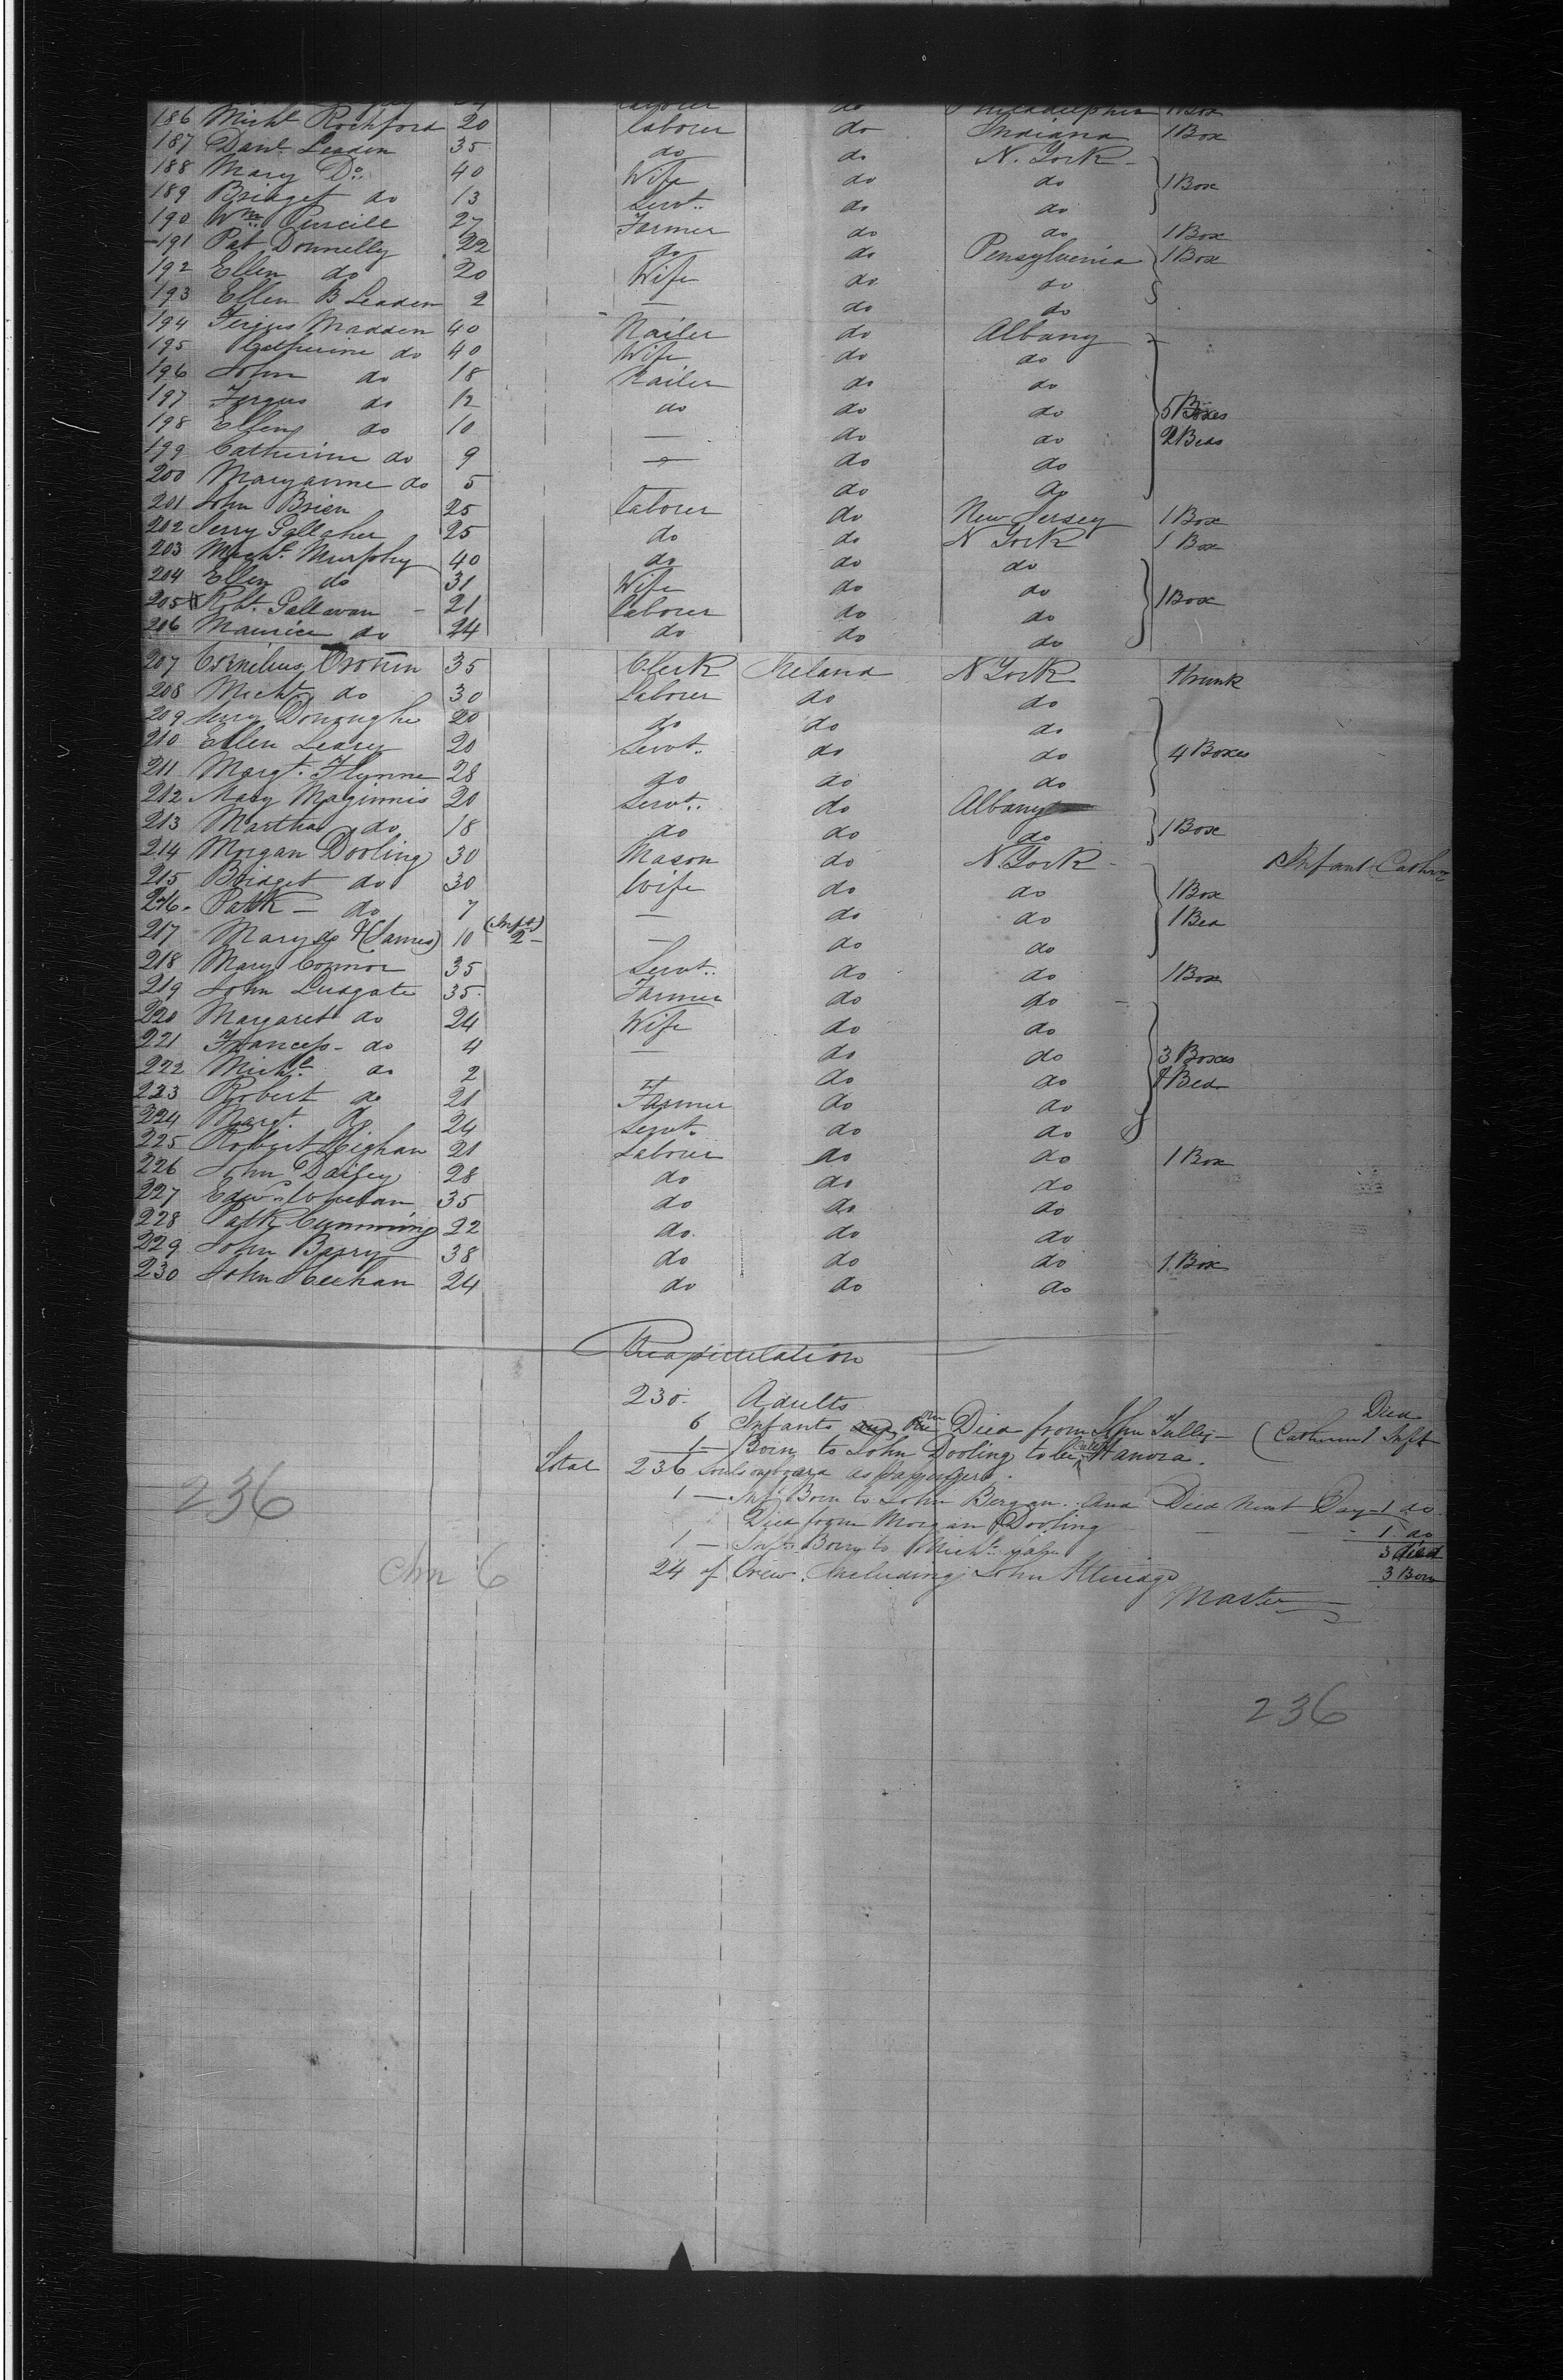 186 Micht Rochford 20 laborer do Indiana 1 Box
187 Danl Leaden 35 do do N. York
188 Mary Do 40 Wife do do 1 Box
189 Bridget do 13 Servt. do do
190 Wm Purcill 27 Farmer do do 1 Box
191 Pat Donnelly 22 do do Pensylvinia 1 Box
192 Ellen do 20 Wife do do
193 Ellen B Leaden 2 — do do
194 Fergus Madden 40 Nailer do Albany
195 Catherine do 40 Wife do do
196 John do 18 Nailer do do
197 Fergus do 12 do do do 5 Boxes
198 Ellen do 10 — do do 2 Beds
199 Catherine do 9 — do do
200 Maryanne do 5 do do
201 John Brien 25 laborer do New Jersey 1 Box
202 Jerry Gallaher 25 do do N York 1 Box
203 Michl Murphy 40 do do do
204 Ellen do 31 Wife do do
205 Robt. Gallavan 21 laborer do do 1 Box
206 Maurice do 24 do do do
207 Cornilius Cronin 35 Clerk Ireland N York 1 trunk
208 Micht do 30 laborer do do
209 Jerry Donoughe 20 do do do
210 Ellen Leary 20 Servt. do do 4 Boxes
211 Margt. Flynne 28 do do do
212 Mary Maginnis 20 Servt. do Albany
213 Martha do 18 do do do 1 Box
214 Morgan Dooling 30 Mason do N. York Infant
215 Bridget do 30 Wife do do 1 Box
216 Patk — do 7 — do do 1 Bed
217 Mary do & (James) 10 (Inft) 2 — do do
218 Mary Connor 35 Servt. do do 1 Box
219 John Ludgate 35 Farmer do do
220 Margaret do 24 Wife do do
221 Francess do 4 — do do 3 Boxes
222 Michl do 2 — do do 1 Bed
223 Robert do 21 Farmer do do
224 Margt. Do 24 Servt. do do
225 Robert Highan 21 Laborer do do 1 Box
226 John Dailey 28 do do do
227 Edwd 35 do do do
228 Patk Cumming 22 do do do
229 John Barry 38 do do do 1 Box
230 John Meehan 24 do do do
Recapitulation
230 Adults
6 Infants one Died from John Tully — (Catherine 1 Inft Died
1 Born to John Dooling to be called Hanora.
Total 236 Souls on board as Passengers.
1 — Inf Born to John Bergan. And Died Next Day — 1 do
Died from Morgan Dooling — 1 do
1 — Inft Born to Michl 3 died
24 of Crew. Including John 3 Born
Master
236
Chn 6
236